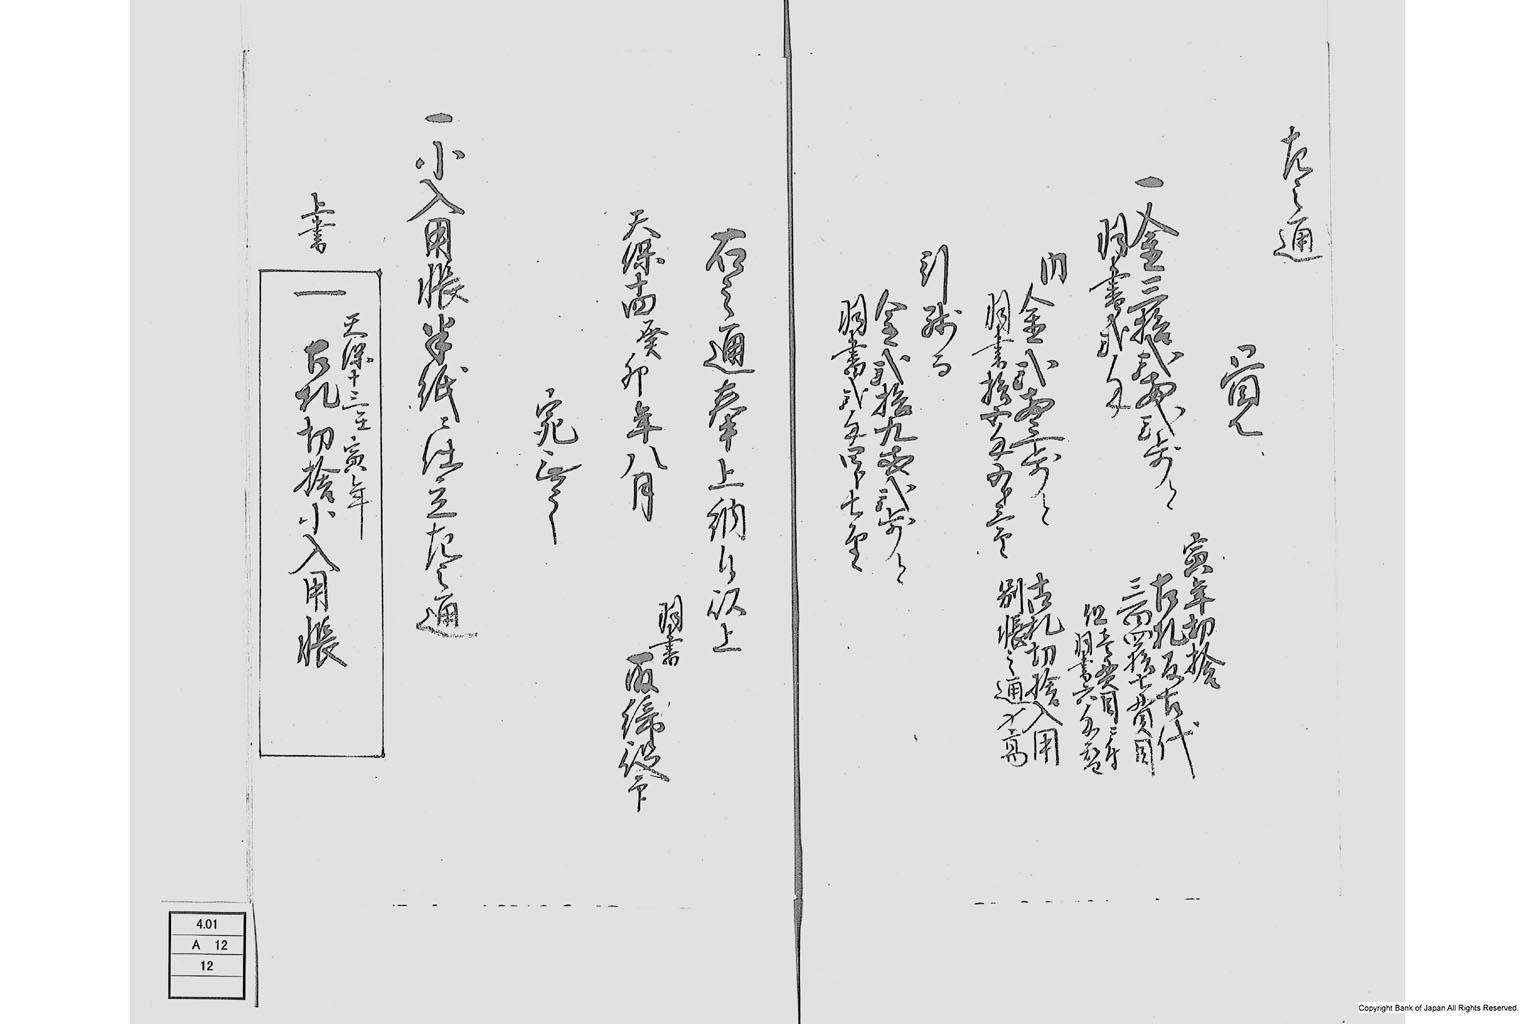 左之通
覚
寅年切捨
古札反古代
三百四拾七貫目
一金三拾弐両弐歩と
羽書弐匁
但壱貫目ニ付
羽書六匁
内
金弐両三歩と
羽書拾六匁五分三厘
古札切捨入用
別帳之通り高
引残而
金弐拾九両弐歩と
羽書弐匁四分七厘
右之通奉上納候以上
羽書
取締役印
天保十四癸卯年八月
宛
一小入用帳半紙ニ仕立左之通
上書
天保十三壬寅年
一古札切捨小入用帳
4.01
A 12
12
Copyright Bank of Japan All Rights Reserved.